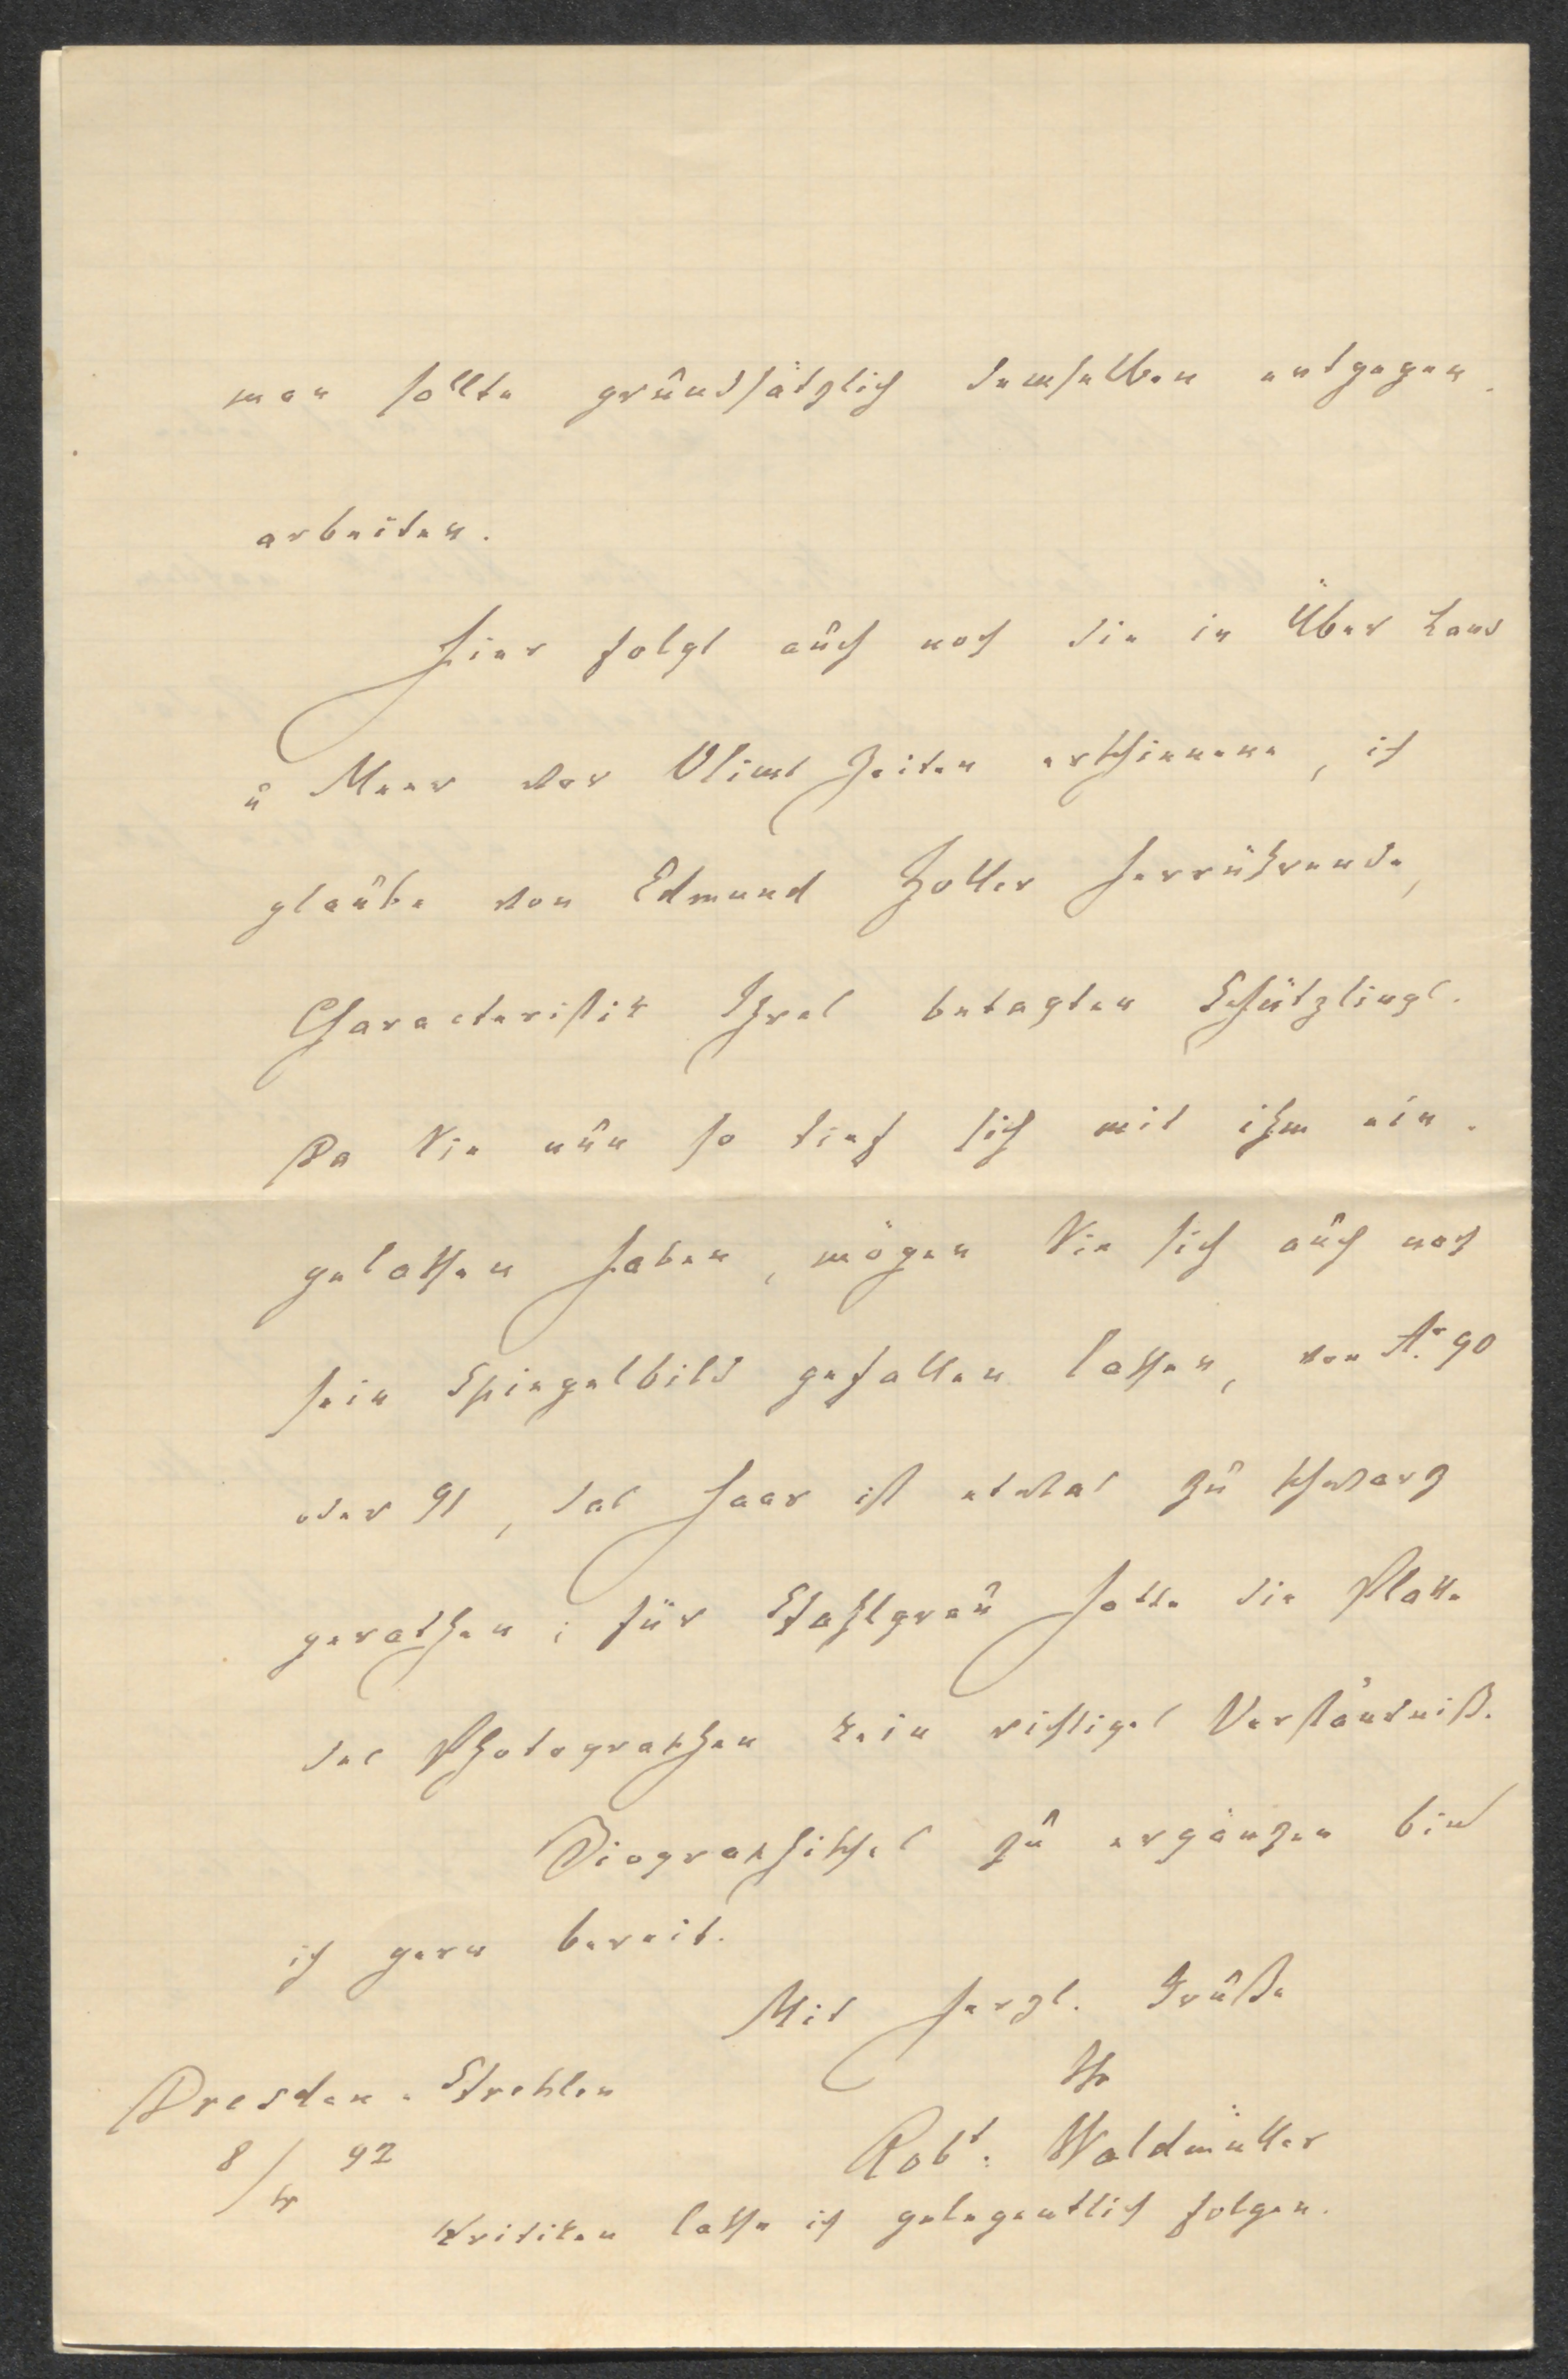 man sollte grundsätzlich demselben entgegen-
arbeiten.
Hier folgt auch noch die in Über Land
u Meer vor Olims Zeiten erschienene, ich
glaube von Edmund Zoller herrührende,
Characteristik Ihres betagten Schützlings.
Da Sie nun so tief sich mit ihm ein-
gelassen haben, mögen Sie sich auch noch
sein Spiegelbild gefallen lassen, von Ao 90
oder 91, das Haar ist etwas zu schwarz
gerathen; für Stahlgrau hatte die Platte
des Photographen kein richtiges Verständniß.
Biographisches zu ergänzen bin
ich gern bereit.
Mit herzl. Gruße
Ihr
Dresden-Strehlen
Robt. Waldmüller
8/4 92
Kritiken lasse ich gelegentlich folgen.